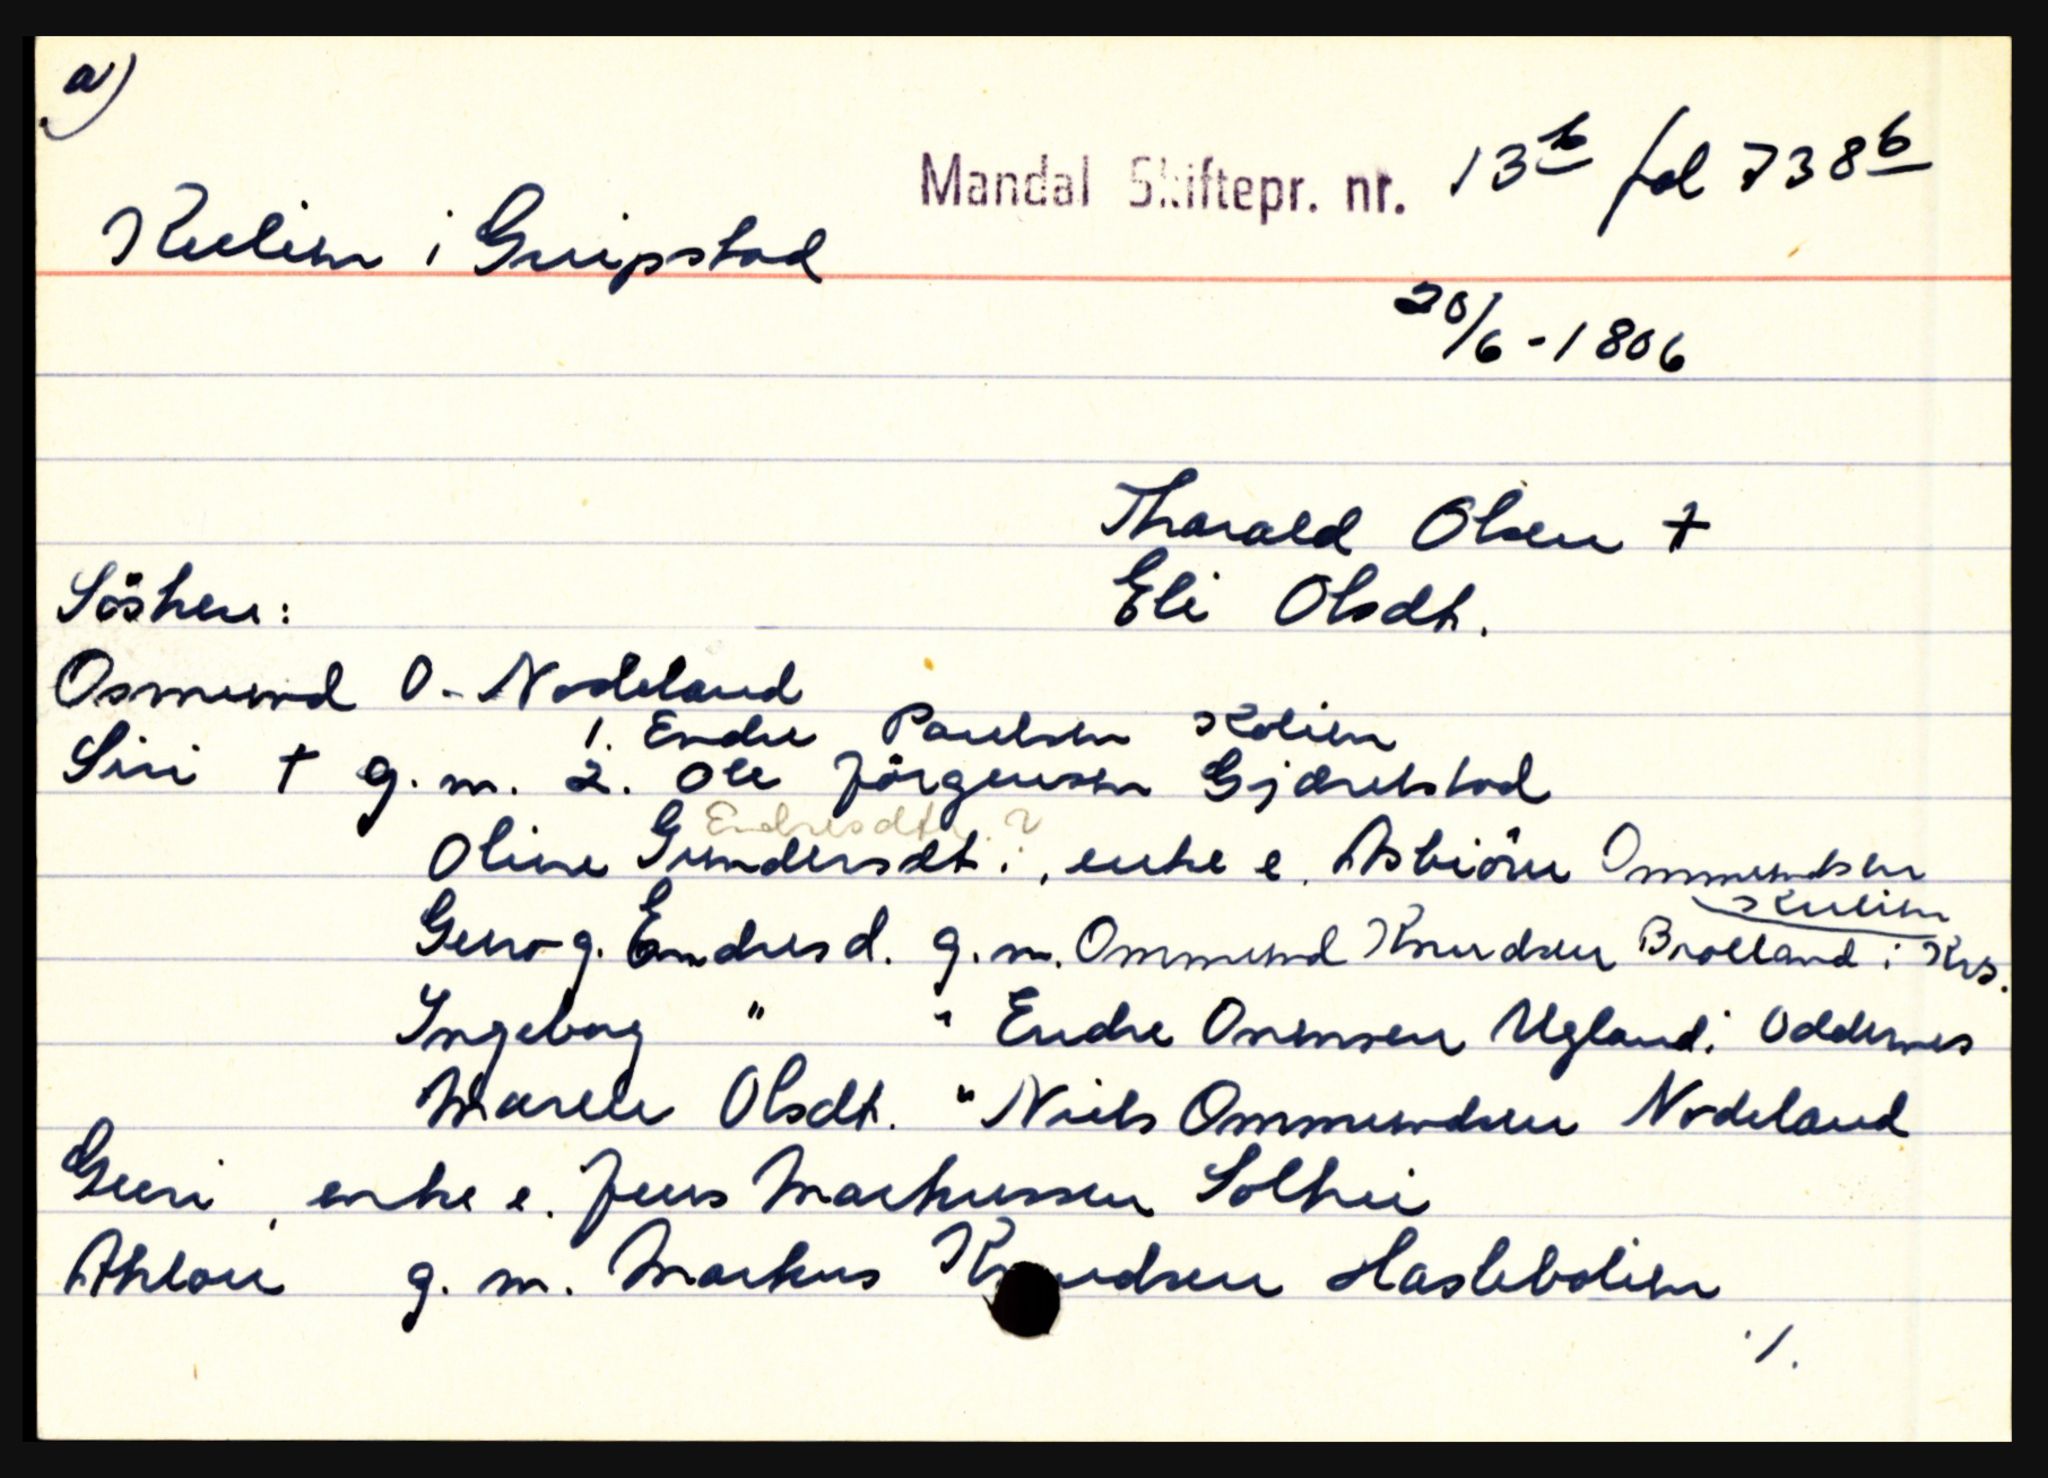 a)
Mandal Skiftepr. nr. 13b fol 738b
Kulien i Greipstad
20/6-1806
Tharald Olsen †
Eli Olsdt.
Søsken:
Osmund O. Nodeland
1. Endre Paulsen Kolien
Siri † g.m. 2. Ole Jörgensen Gjærelstad
Endresdtr. ?
Oline Gundersdt., enke e. Asbiörn Ommundsen
Kulien
Guro g. Endresd. g.m. Ommund Knudsen Broeland i Krs.
Ingeborg " " Endre Onensen Ugland i Oddernes
Maren Olsdt. " Niels Ommundsen Nodeland
Guri, enke e. Jens Markussen Solhei
Ahlou g.m. Markus Knudsen Haslebolien
./.